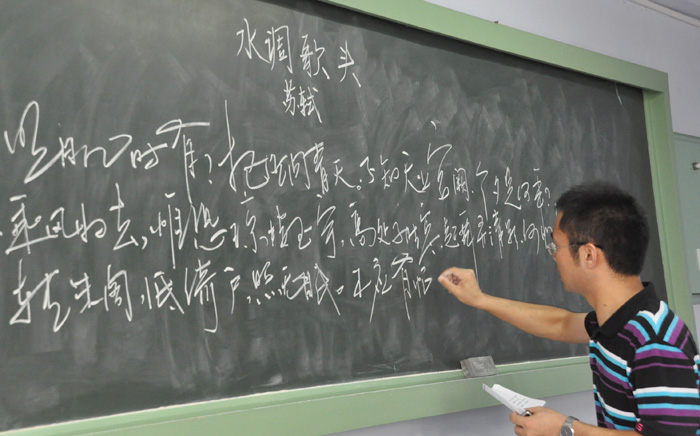 水调歌头
苏轼
明月几时有？把酒问青天。不知天上宫阙，今夕是何年。
乘风归去，惟恐琼楼玉宇，高处不胜寒，起舞弄清影，何似
转朱阁，低绮户，照无眠。不应有恨